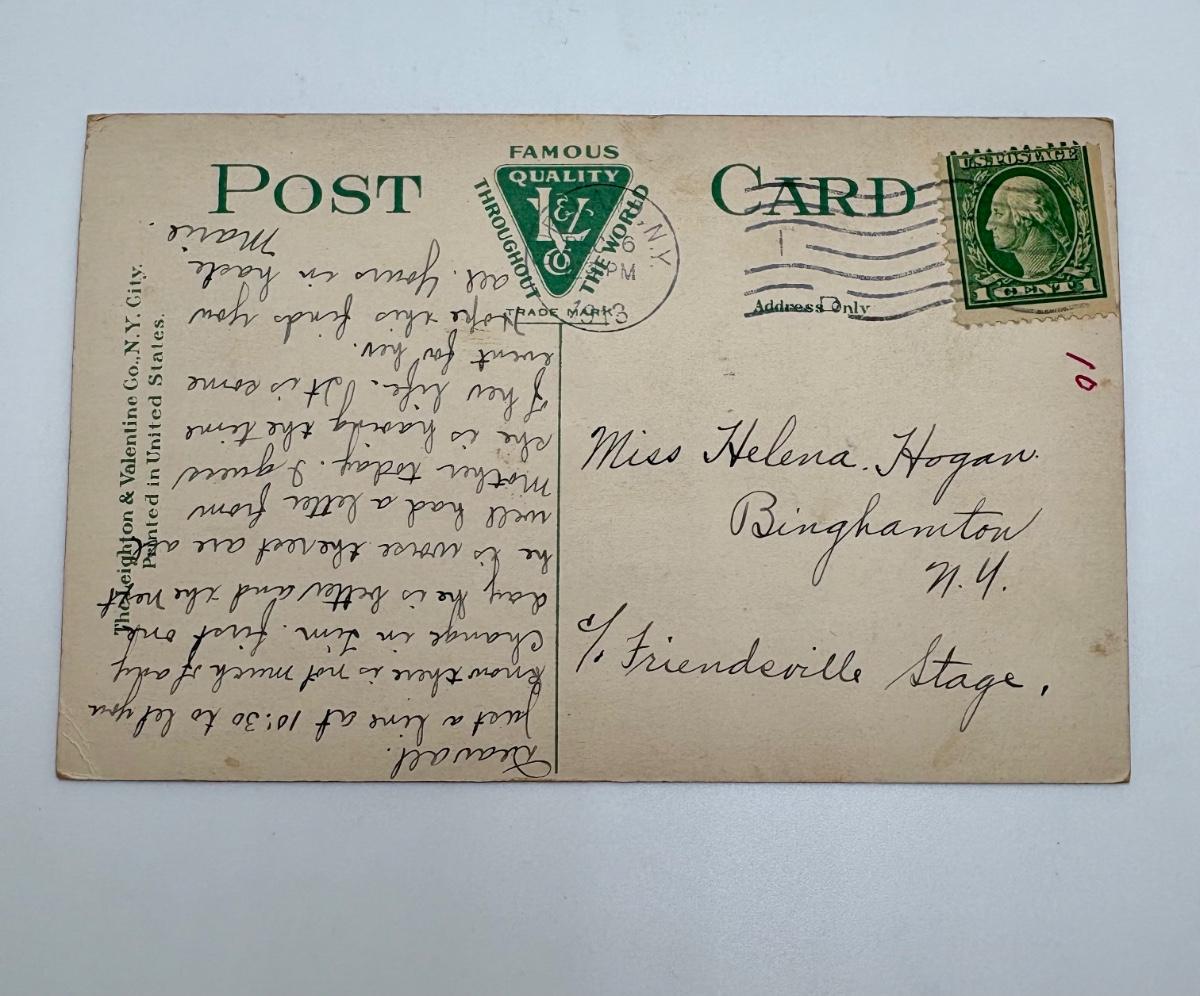 FAMOUS
QUALITY
L & V
Co
THROUGHOUT
THE WORLD
TRADE MARK
POST CARD
N.Y.
6
PM
1913
U.S. POSTAGE
1 CENT 1
Address Only
10
Miss Helena. Hogan.
Binghamton
N.Y.
c/o Friendsville Stage.
The Leighton & Valentine Co., N.Y. City.
Printed in United States.
Dear all.
Just a line at 10:30 to let you
know there is not much of any
change in Jim. first one
day he is better and the next
he is worse the rest are all
well had a letter from
Mother today. I guess
she is having the time
of her life. It is some
event for her.
Hope this finds you
all. Yours in haste
Marie.